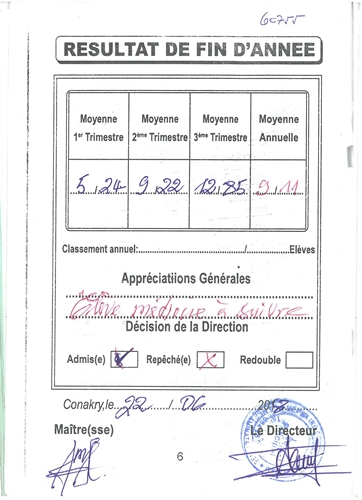 60755
RESULTAT DE FIN D'ANNEE
Moyenne 1er Trimestre
Moyenne 2ème Trimestre
Moyenne 3ème Trimestre
Moyenne Annuelle
5,24 9,22 12,85 9,11
Classement annuel:............/............Elèves
Appréciatiions Générales
Elève médiocre à suivre
Décision de la Direction
Admis(e) Repêché(e) X Redouble
Conakry,le 22 / 06 / 2018
Maître(sse) Le Directeur
6